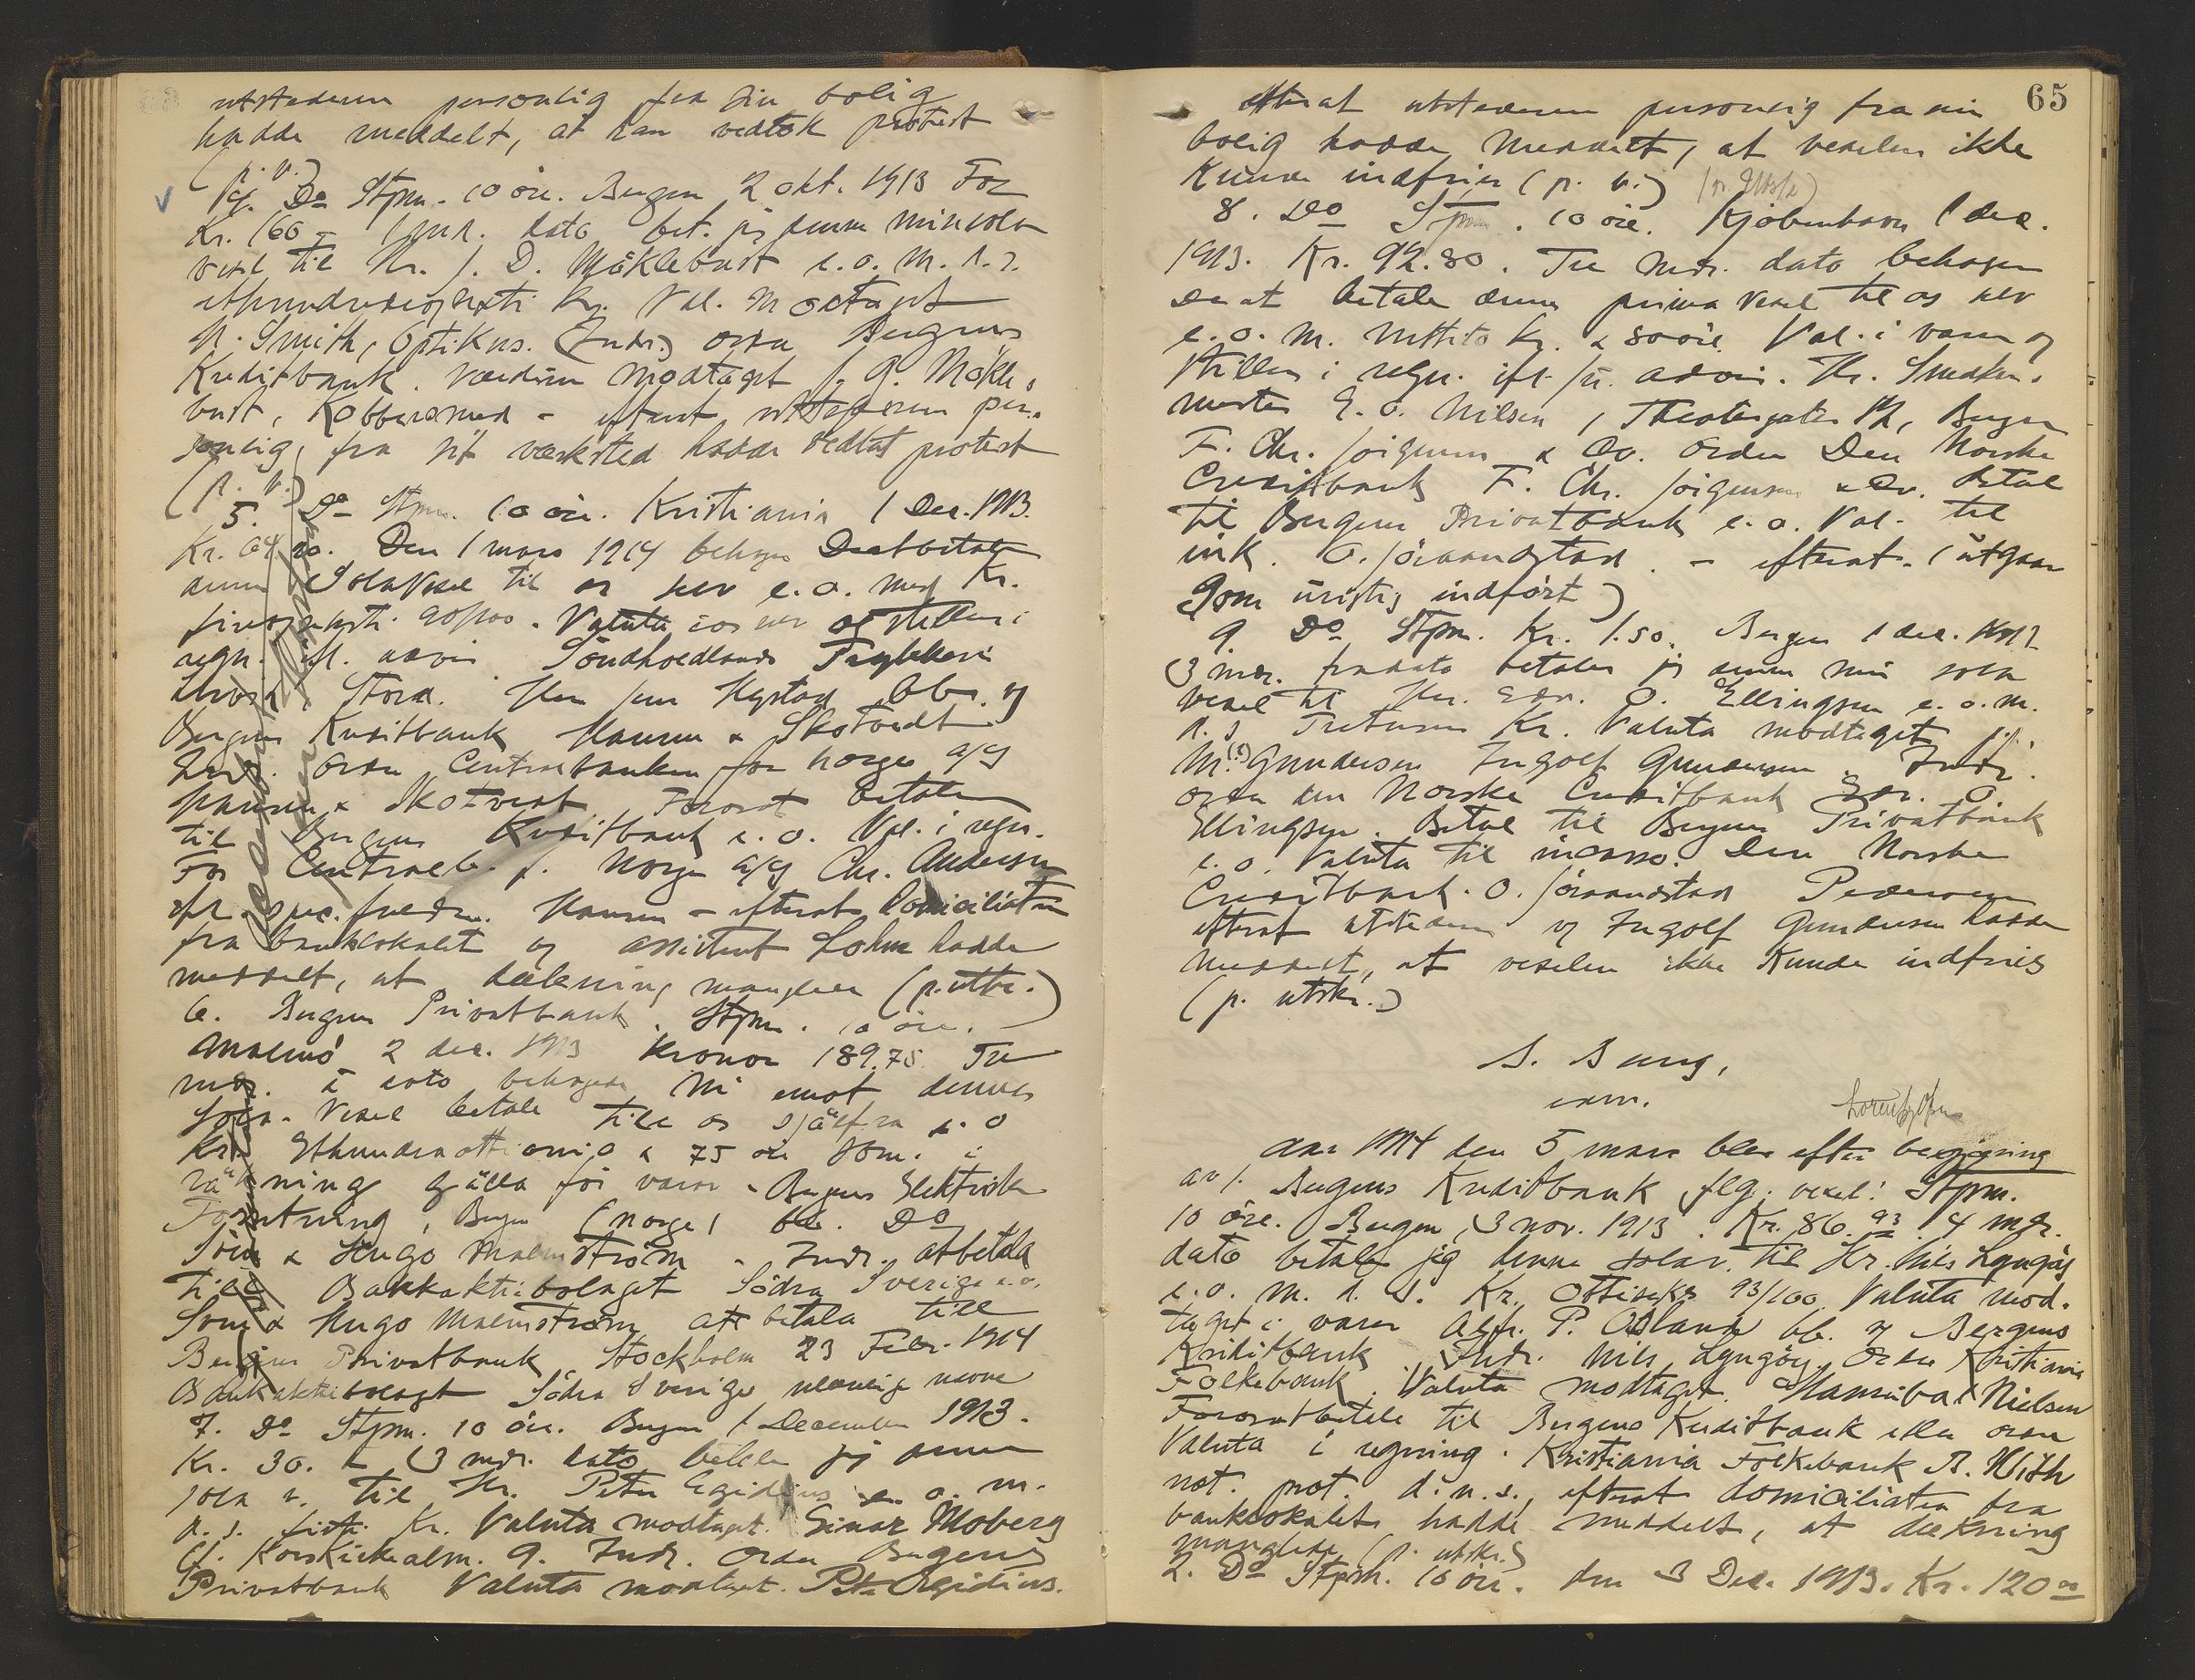 utstederen personlig fra sin bolig
hadde meddelt, at han vedtok protest
(p. v.)
4. Do Stpm. 10 öre. Bergen 2 okt. 1913 For
Kr. 160 - mdr. dato bet. jeg denne min sola
vexel til Hr. J. D. Möklebust e. o. m. n. s.
etthundredeogseksti Kr. Val. modtaget
N. Smith, Optikus. (Indr.) ordre Bergens
Kreditbank. Værdien modtaget J. D. Mökle-
bust, Kobbersmed - efterat utstederen per-
sonlig, fra sit verksted hadde vedtat protest
(p. v.)
5. Do Stpm. 10 öre. Kristiania 1 Dec. 1913.
Kr. 64.20. Den 1 mars 1914 behager De at betale
denne Solavexel til os selv e. o. med Kr.
Valuta i os selv og stilles i
regn. ifl. advis Söndhordlands Trykkeri
Stord. Herr Jens Hystad bb. og
Bergens Kreditbank Hansen & Skotvedt
Indr. Ordre Centralbanken for Norge A/S
Hansen & Skotvedt Forord betales
til Bergens Kreditbank e. o. Val. i regn.
For Centralb. f. Norge A/S Chr. Andersen
efter spec. fuldm. Hansen - efterat domiciliaten
fra banklokalet og assistent Lohm hadde
meddelt, at dækning mangler (p. utbr.)
6. Bergens Privatbank. Stpm. 10 öre.
Malmö 2 dec. 1913 Kronor 189.75 Tre
mdr. à dato behagade Ni emot denna
Sola-Vexel betala till os själfva e. o
Kr. Etthundraåttionio & 75 öre som i
räkning gälla för varor. Bergens Elektriske
Forretning, Bergen (Norge) bb. Do
Sven & Hugo Malmström - Indr. att betala
till Bankaktiebolaget Södra Sverige e. o.
Sven & Hugo Malmström att betala till
Bergens Privatbank Stockholm 23 Febr. 1914
Bankaktiebolaget Södra Sverige
7. Do Stpm. 10 öre. Bergen 1 December 1913.
Kr. 30. - 3 mdr. dato betaler jeg denne
sola v. til Hr. Peter Egidius e. o. m.
n. s. Kr. Valuta modtaget. Einar Moberg
Korskirkealm. 9. Indr. Ordre Bergens
Privatbank Valuta modtaget. Petr. Egidius.
65
efterat utstederen personlig fra sin
bolig hadde meddelt, at vexelen ikke
Kunde indfries (p. v.)
8. Do Stpm. 10 öre. Kjöbenhavn 1 dec.
1913. Kr. 92.80. Tre mdr. dato behager
De at betale denne prima vexel til os selv
e. o. m. nittito Kr. & 80 öre. Val. i varer og
stilles i regn. ifl. advis. Hr. Smedem.
mester E. O. Nilsen, Theatergaten 12, Bergen
F. Chr. Jörgensen & Co. Ordre Den Norske
Creditbank F. Chr. Jörgensen & Co. Betal
til Bergens Privatbank e. o. Val. til
ink. O. Jöraandstad. - efterat - (utgaar
som uriktig indfört)
9. Do Stpm. Kr. 1.50. Bergen 1 dec. 1913
3 mdr. fra dato betaler jeg denne min sola
vexel til Hr. Edv. O. Ellingsen e. o. m.
n. s. Kr. Valuta modtaget
M. (?) Gundersen Ingolf Gundersen. Indr.
ordre den Norske Creditbank Edv. O.
Ellingsen. Betal til Bergens Privatbank
e. o. Valuta til incasso. Den Norske
Creditbank. O. Jöraandstad Pedersen
efterat utstederen og Ingolf Gundersen hadde
meddelt, at vexelen ikke Kunde indfries
(p. utskr.)
S. Bang,
Lorentzen
Aar 1914 den 5 mars blev efter begjæring
av 1. Bergens Kreditbank flg. vexel: Stpm.
10 öre. Bergen, 3 nov. 1913. Kr. 86.93. 4 mdr.
dato betaler jeg denne solav. til Hr. Nils Lyngöy
e. o. m. n. s. Kr. Ottiseks 93/100 Valuta mod-
taget i varer Alfr. P. Osland bb. og Bergens
Kreditbank. Indr. Nils Lyngöy. Ordre Kristiania
Folkebank. Valuta modtaget. Hannibal Nielsen
Forord betale til Bergens Kreditbank eller ordre
Valuta i regning. Kristiania Folkebank A. With
not. prot. d. n. s., efterat domiciliaten fra
banklokalet hadde meddelt, at dækning
manglede (p. utskr.)
2. Do Stpm. 10 öre. den 3 Dec. 1913. Kr. 120 00